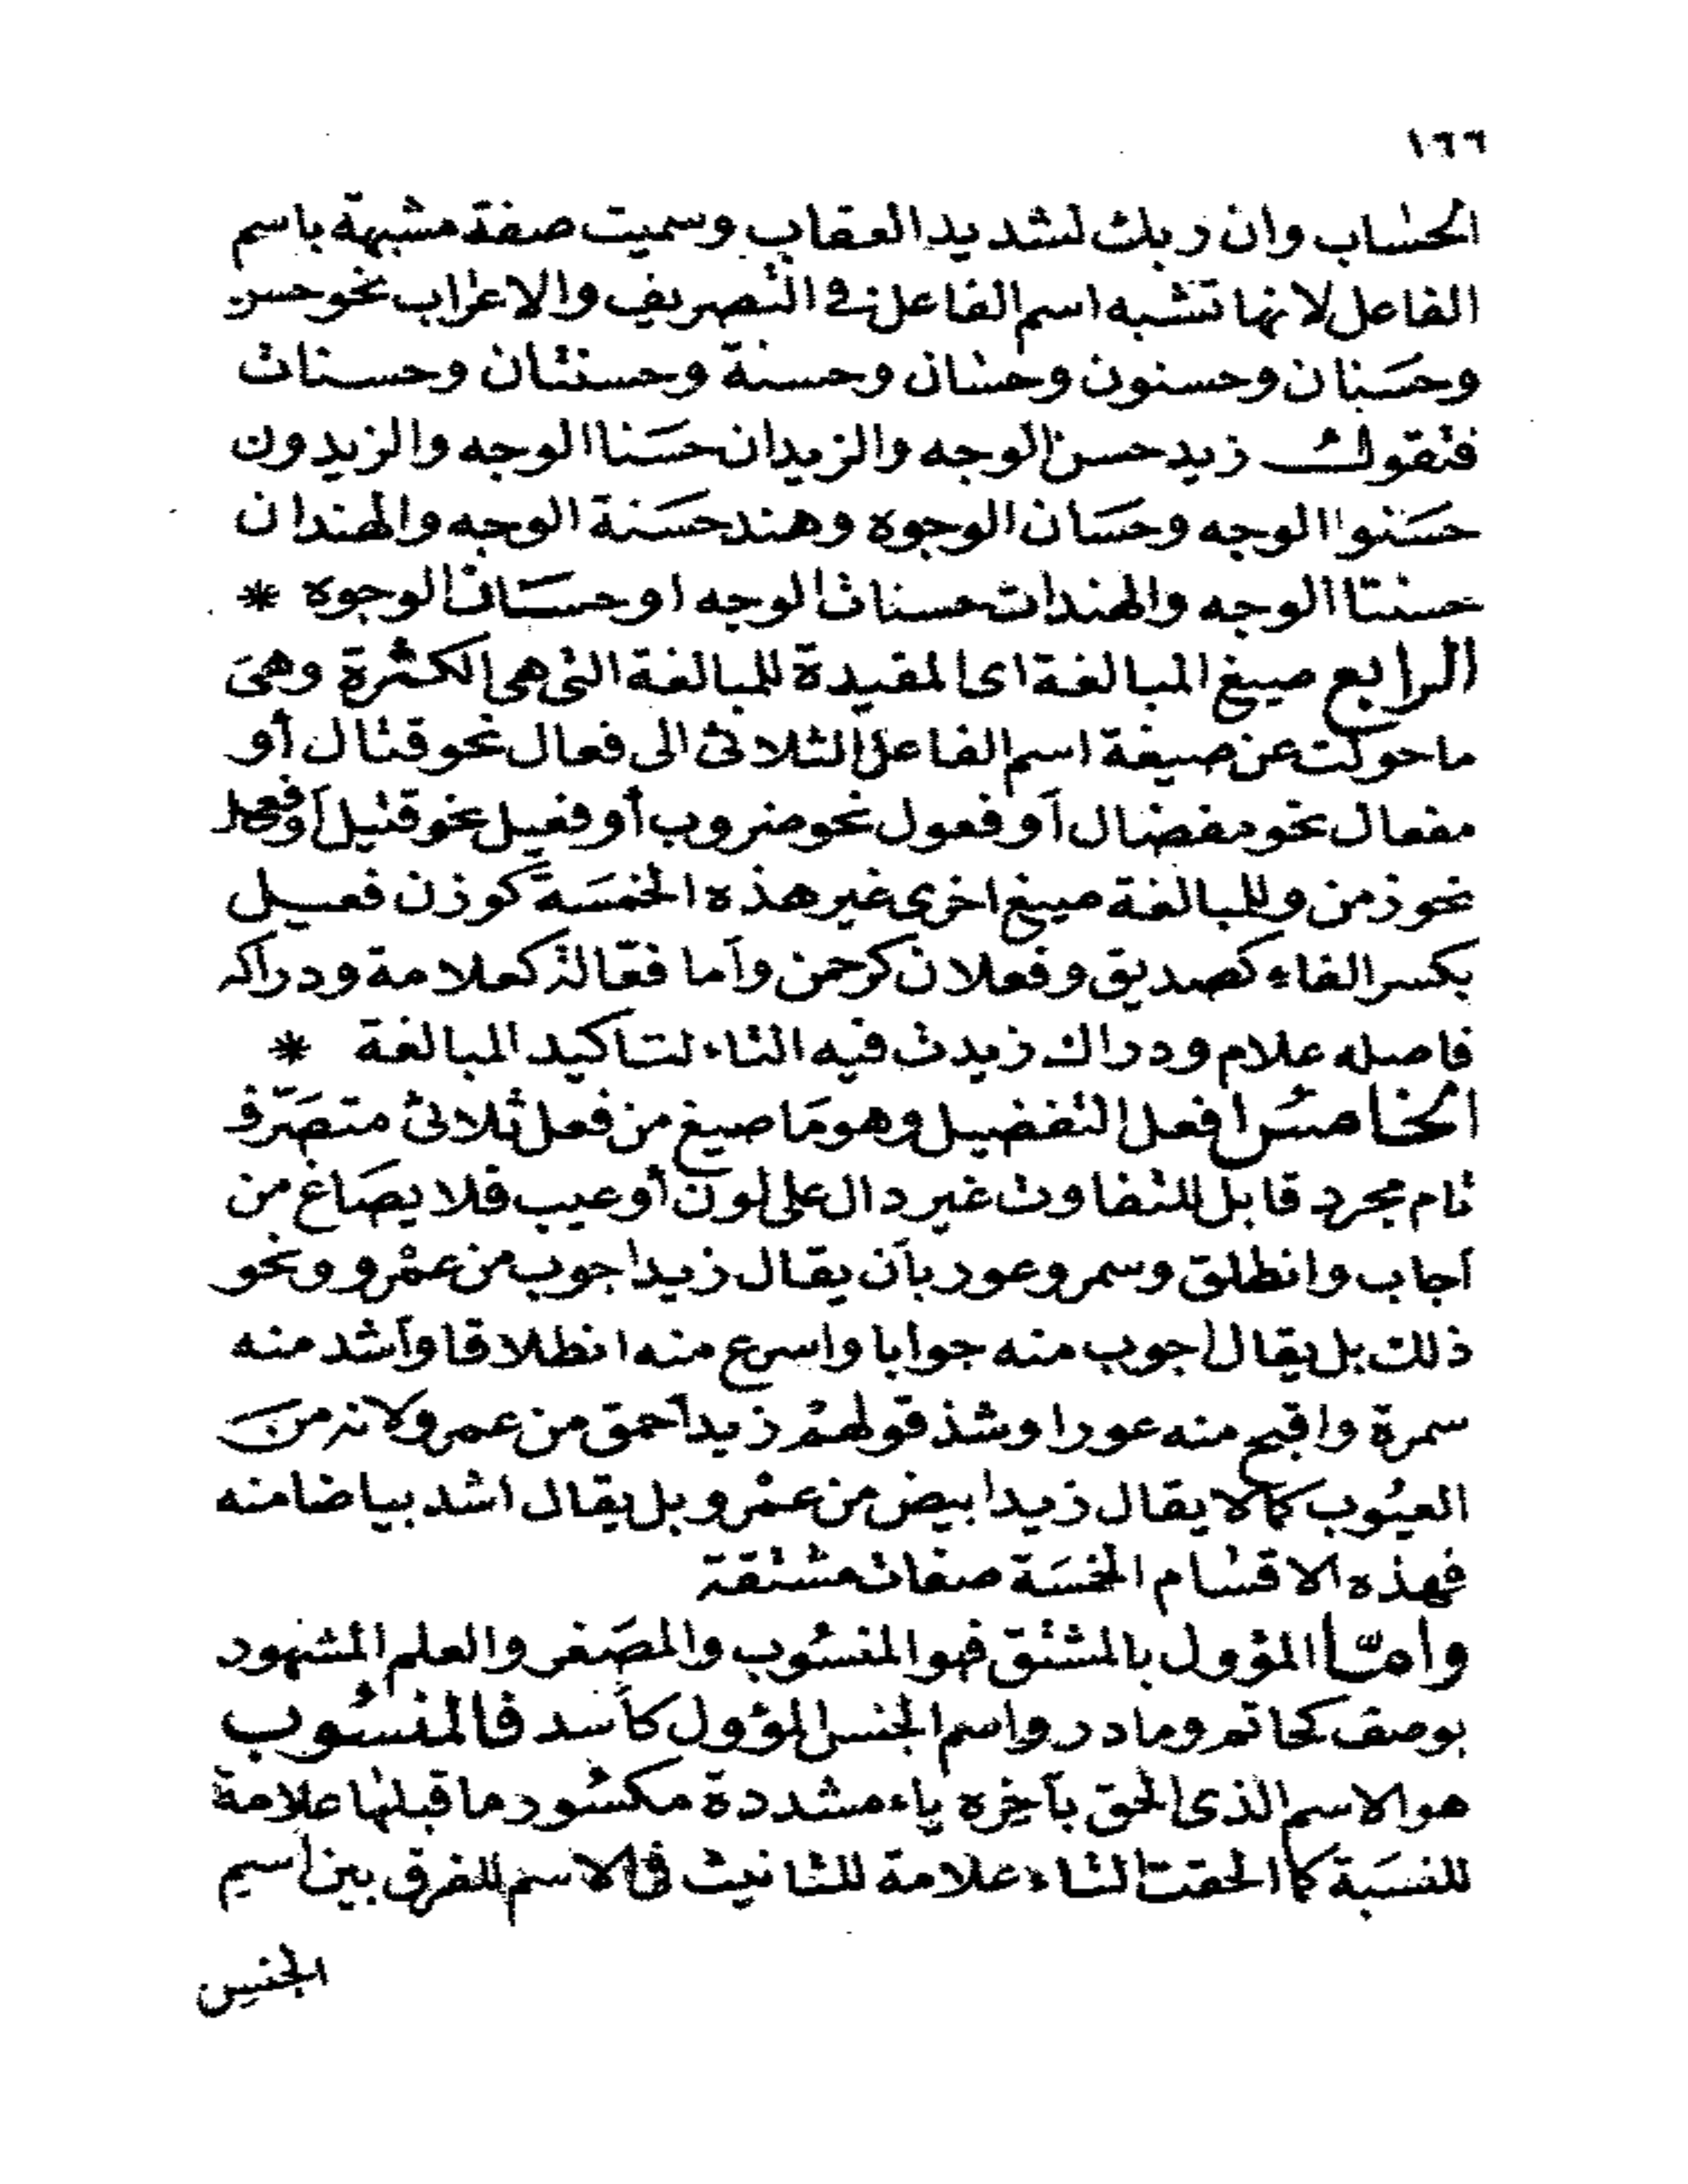 ١٦٦
الحساب وان ربك لشديد العقاب وسميت صفة مشبهة باسم
الفاعل لانها تشبه اسم الفاعل في التصريف والاعراب نحو حسن
وحسَنان وحسنون وحسان وحسنة وحسنتان وحسنات
فتقول زيد حسن الوجه والزيدان حسَنا الوجه والزيدون
حسَنوا الوجه وحسَان الوجوه وهند حسَنة الوجه والهندان
حسنتا الوجه والهندات حسنات الوجه او حسَان الوجوه *
الرابع صيغ المبالغة اى المفيدة للمبالغة التى هى الكثرة وهى
ما حولت عن صيغة اسم الفاعل الثلاثى الى فعال نحو قتال أو
مفعال نحو مفضال أو فعول نحو ضروب أو فعيل نحو قتيل أو فعل
نحو زمن وللمبالغة صيغ اخرى غير هذه الخمسَة كوزن فعيل
بكسر الفاء كصديق وفعلان كرحمن وأما فعّالة كعلامة ودراكه
فاصله علام ودراك زيدت فيه التاء لتاكيد المبالغة *
الخامسُ افعل التفضيل وهو مَا صيغ من فعل ثلاثى متصَرّف
تام مجرد قابل للتفاوت غير دال على لون أو عيب فلا يصَاغ من
أجاب وانطلق وسمر وعور بأن يقال زيد اجوب من عمْرو ونحو
ذلك بل يقال اجوب منه جوابا واسرع منه انطلاقا وأشد منه
سمرة واقبح منه عورا وشذ قولهمْ زيد أحمق من عمرو لانه من
العيُوب كما لا يقال زيد ابيض من عمْرو بل يقال اشد بياضا منه
فهذه الاقسام الخمسَة صفات مشتقة
وامّا المؤول بالمشتق فهو المنسُوب والمصَغر والعلم المشهور
بوصف كحاتم ومادر واسم الجنس المؤول كأسد فالمنسُوب
هو الاسم الذى الحق بآخِره ياء مشددة مكسُور ما قبلها علامة
للنسَبة كما الحقت التاء علامة للتانيث فى الاسم للفرق بين اسم
الجنس